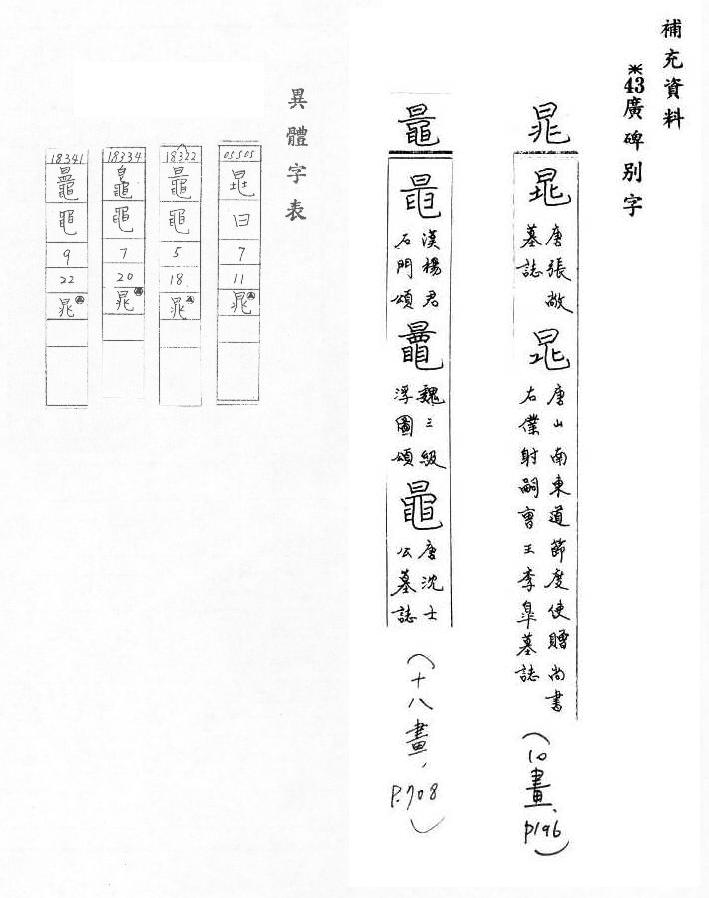 補充資料
*43廣碑別字
晁
唐張
墓誌
唐山南東道節度使贈尚書
右僕射嗣曹王李皐墓誌
(10畫、p196)
鼂
漢楊君
石門頌
魏三級
浮圖頌
唐沈士
公墓誌
(十八畫,P.708)
異體字表
05505
日
7
11
晁
18322
鼂
黽
5
18
晁
18334
黽
7
20
晁
18341
黽
9
22
晁